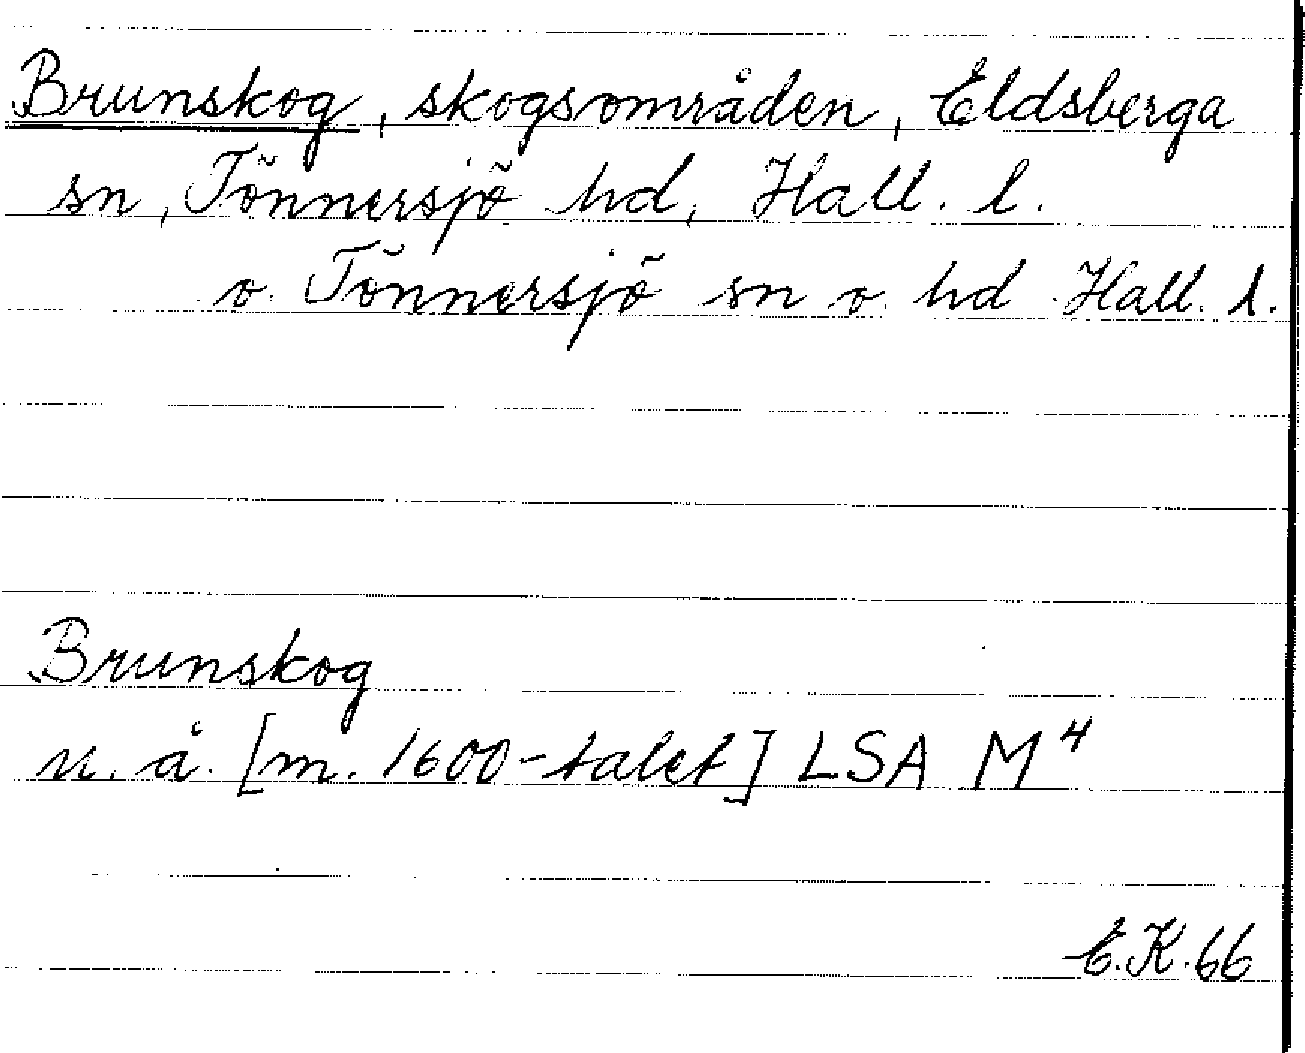 Brunskog, skogsområden, Eldsberga
sn, Tönnersjö hd, Hall. l.
o. Tönnersjö sn o. hd Hall. l.
Brunskog
u. å. [m. 1600-talet] LSA M⁴
E.K. 66